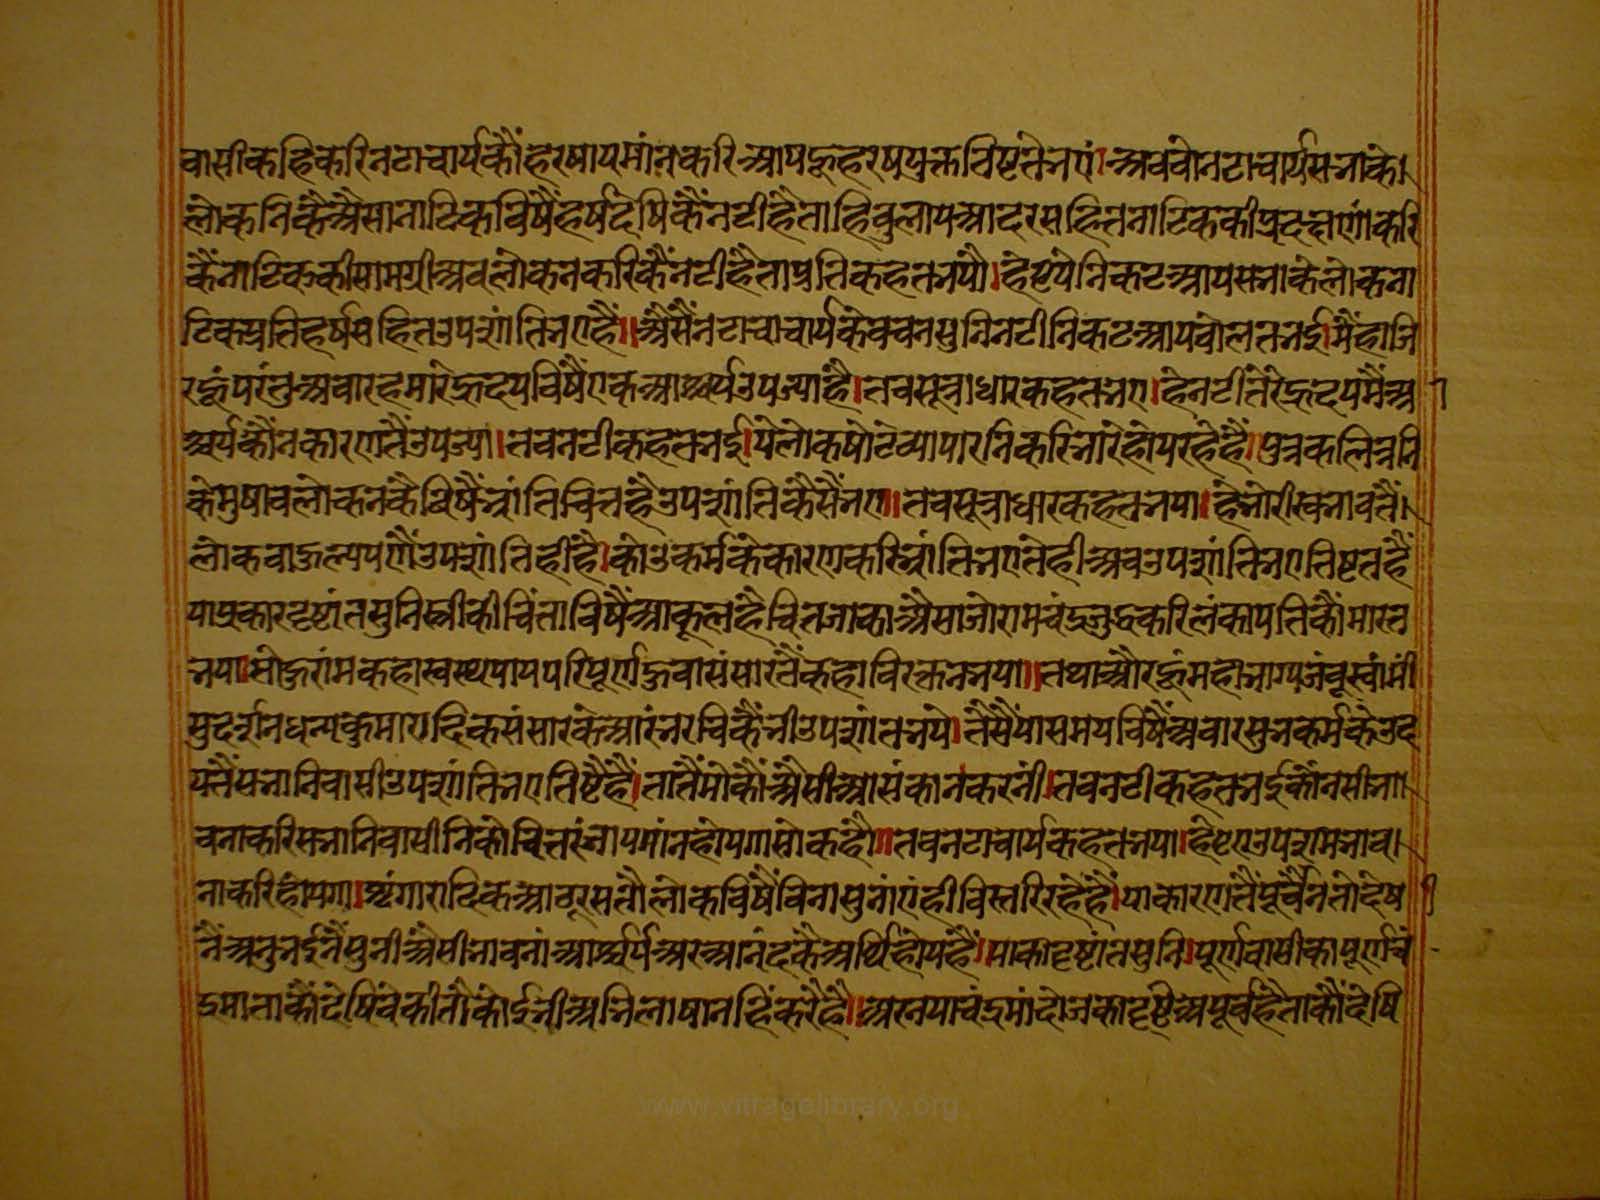 वासीकहिकरिनटाचार्यकौंहरषायमांनकरिआपहूहरषयुक्ततिष्टतेभएं।अबवोनटाचार्यसभाके।
लोकनिकैंअैसानाटिकविषैंहर्षदेषिकैंनटीहैताहिवुलायआदरसहितनाटिककीप्रदक्षणांकरि
कैंनाटिककीसामग्रीअवलोकनकरिकैंनटीहैताप्रतिकहतभयौ।हेप्रियेनिकटआयसभाकेलोकना
टिकप्रतिहर्षसहितउपशांतिभएहैं॥अैसैंनटाचाचार्यकेवचनसुनिनटीनिकटआयबोलतभई।मैंहाजि
रहूंपरंतुअबारहमारेहृदयविषैंएकआश्चर्यउपज्याहै।तबसूत्राधारकहतभए।हेनटीतेरेहृदयमैंअ
श्चर्यकौंनकारणतैंउपज्या।तबनटीकहतभई।येलोकषोटेव्यापारनिकरिभारेहोयरहेहैं।पुत्रकलित्रनि
केमुषावलोकनकैविषैंभ्रांतिचितहैउपशांतिकैसैंभए॥तबसूत्राधारकहतभया।हेभोरीस्वभावतैं।
लोकवाऊल्यपणैंउपशांतिहीहै।कोउकर्मकेकारणकरिभ्रांतिभएतेहीअबउपशांतिभएतिष्टतहैं
याप्रकारदृष्टांतसुनिस्त्रीकीचिंताविषैंआकूलहैचितजाकाअैसाजोरामचंद्रजुद्धकरिलंकापतिकौंमारत
भया।सीऊरांमकहास्वस्थपायपरिपूर्णऊवासंसारतैंकहाविरक्तनभया॥तथाऔरहूंमहाभाग्यजंबूस्वांमी
सुदर्शनधन्यकुमारादिकसंसारकेआरंभरचिकैंभीउपशांतभये।तैसैंयासमयविषैंअबारसुभकर्मकेउद
यतैंसभानिवासीउपशांतिभएतिष्टैहैं।तातैंमोकौंअैसीआसंकानकरनी।तबनटीकहतभईकौंनसीभा।
वनाकरिसभानिवासीनिकोचित्तरंजायमांनहोयगासोकहौ॥तबनटाचार्यकहतभया।हेप्रिएउपशमभाव।
नाकरिहोयगा।शृंगारादिकआठूरसतौलोकविषैंविनासुनांएंहीविस्तरिरहेहैं।याकारणतैंपूर्वैनतोदेष
नैंअनुभईनैंसुनीअैसीभावनांआश्चर्यअरआनंदकैंअर्थिहोयहैं।याकादृष्टांतसुनि।पूर्णवासीकापूर्णचं
द्रमाताकौंदेषिवेकीतौकोईभीअभिलाषानहिंकरैहै॥अरनयाचंद्रमांदोजकादृष्टिअपूर्वहैताकौंदेषि
www.vitragelibrary.org